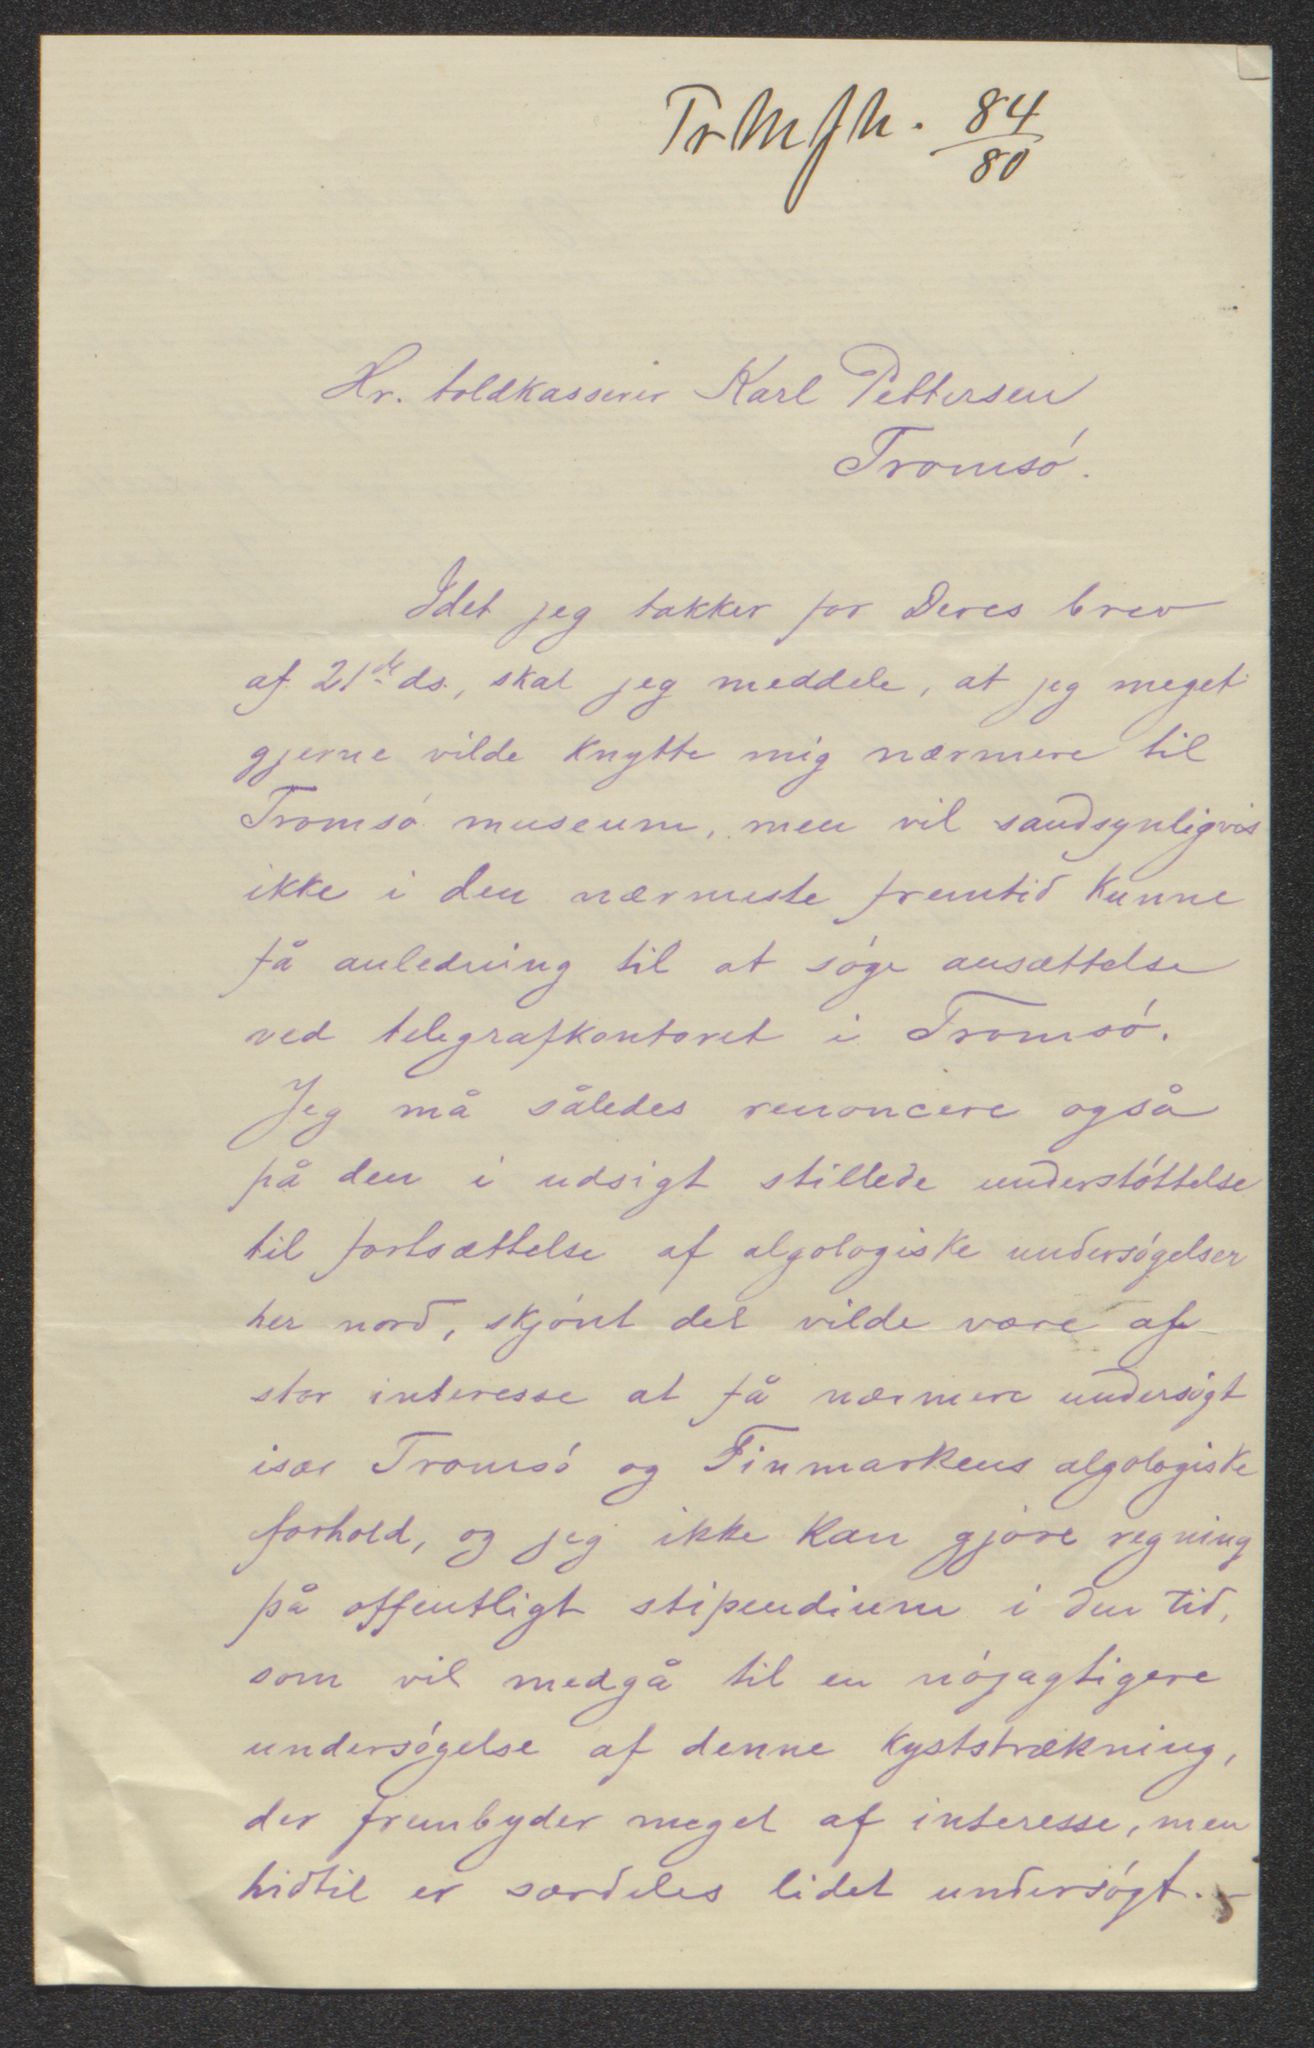 Tr M J N. 84/80
Hr. toldkasserer Karl Pettersen
Tromsó.
Idet jeg takker for Deres brev
af 21de ds., skal jeg meddele, at jeg meget
gjerne vilde knytte mig nærmere til
Tromsó museum, men vil sandsynligvis
ikke i den nærmeste fremtid kunne
få anledning til at sóge ansættelse
ved telegrafkontoret i Tromsó.
Jeg må således renoncere også
på den i udsigt stillede understóttelse
til fortsættelse af algologiske undersógelser
her nord, skjónt det vilde være af
stor interesse at få nærmere undersógt
især Tromsó og Finmarkens algologiske
forhold, og jeg ikke kan gjóre regning
på offentligt stipendium i den tid,
som vil medgå til en nójagtigere
undersógelse af denne kyststrækning,
der frembyder meget af interesse, men
hidtil er særdeles lidet undersógt. –